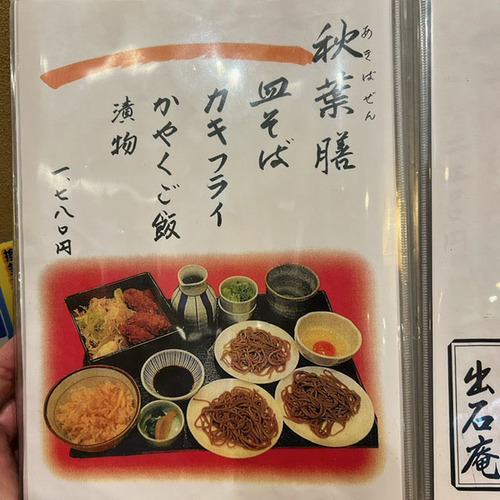 秋葉膳
あきばぜん
皿そば
カキフライ
かやくご飯
漬物
一、七八〇円
出石庵